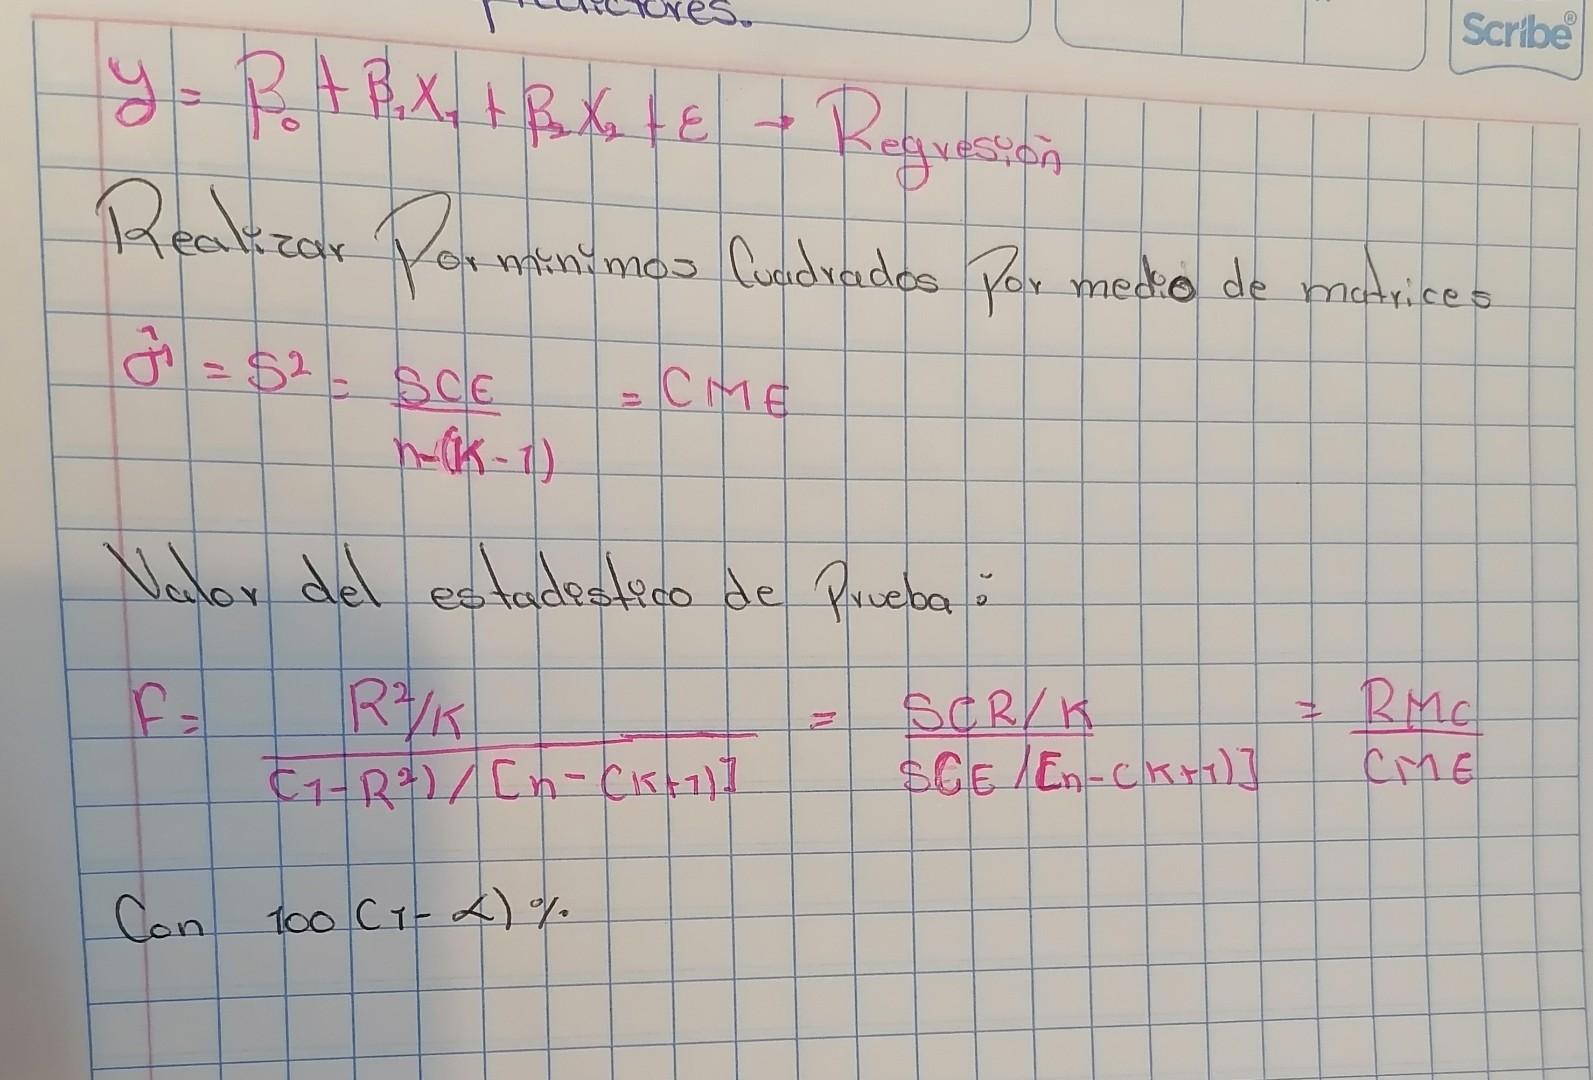 predictores.
Scribe®
y = β₀ + β₁X₁ + β₂X₂ + ε → Regresión
Realizar Por mínimos Cuadrados Por medio de matrices
σ̂² = S² = SCE / n-(K-1) = CME
Valor del estadístico de Prueba:
F = R²/K / (1-R²)/[n-(K+1)] = SCR/K / SCE/[n-(K+1)] = RMC / CME
Con 100(1-α)%